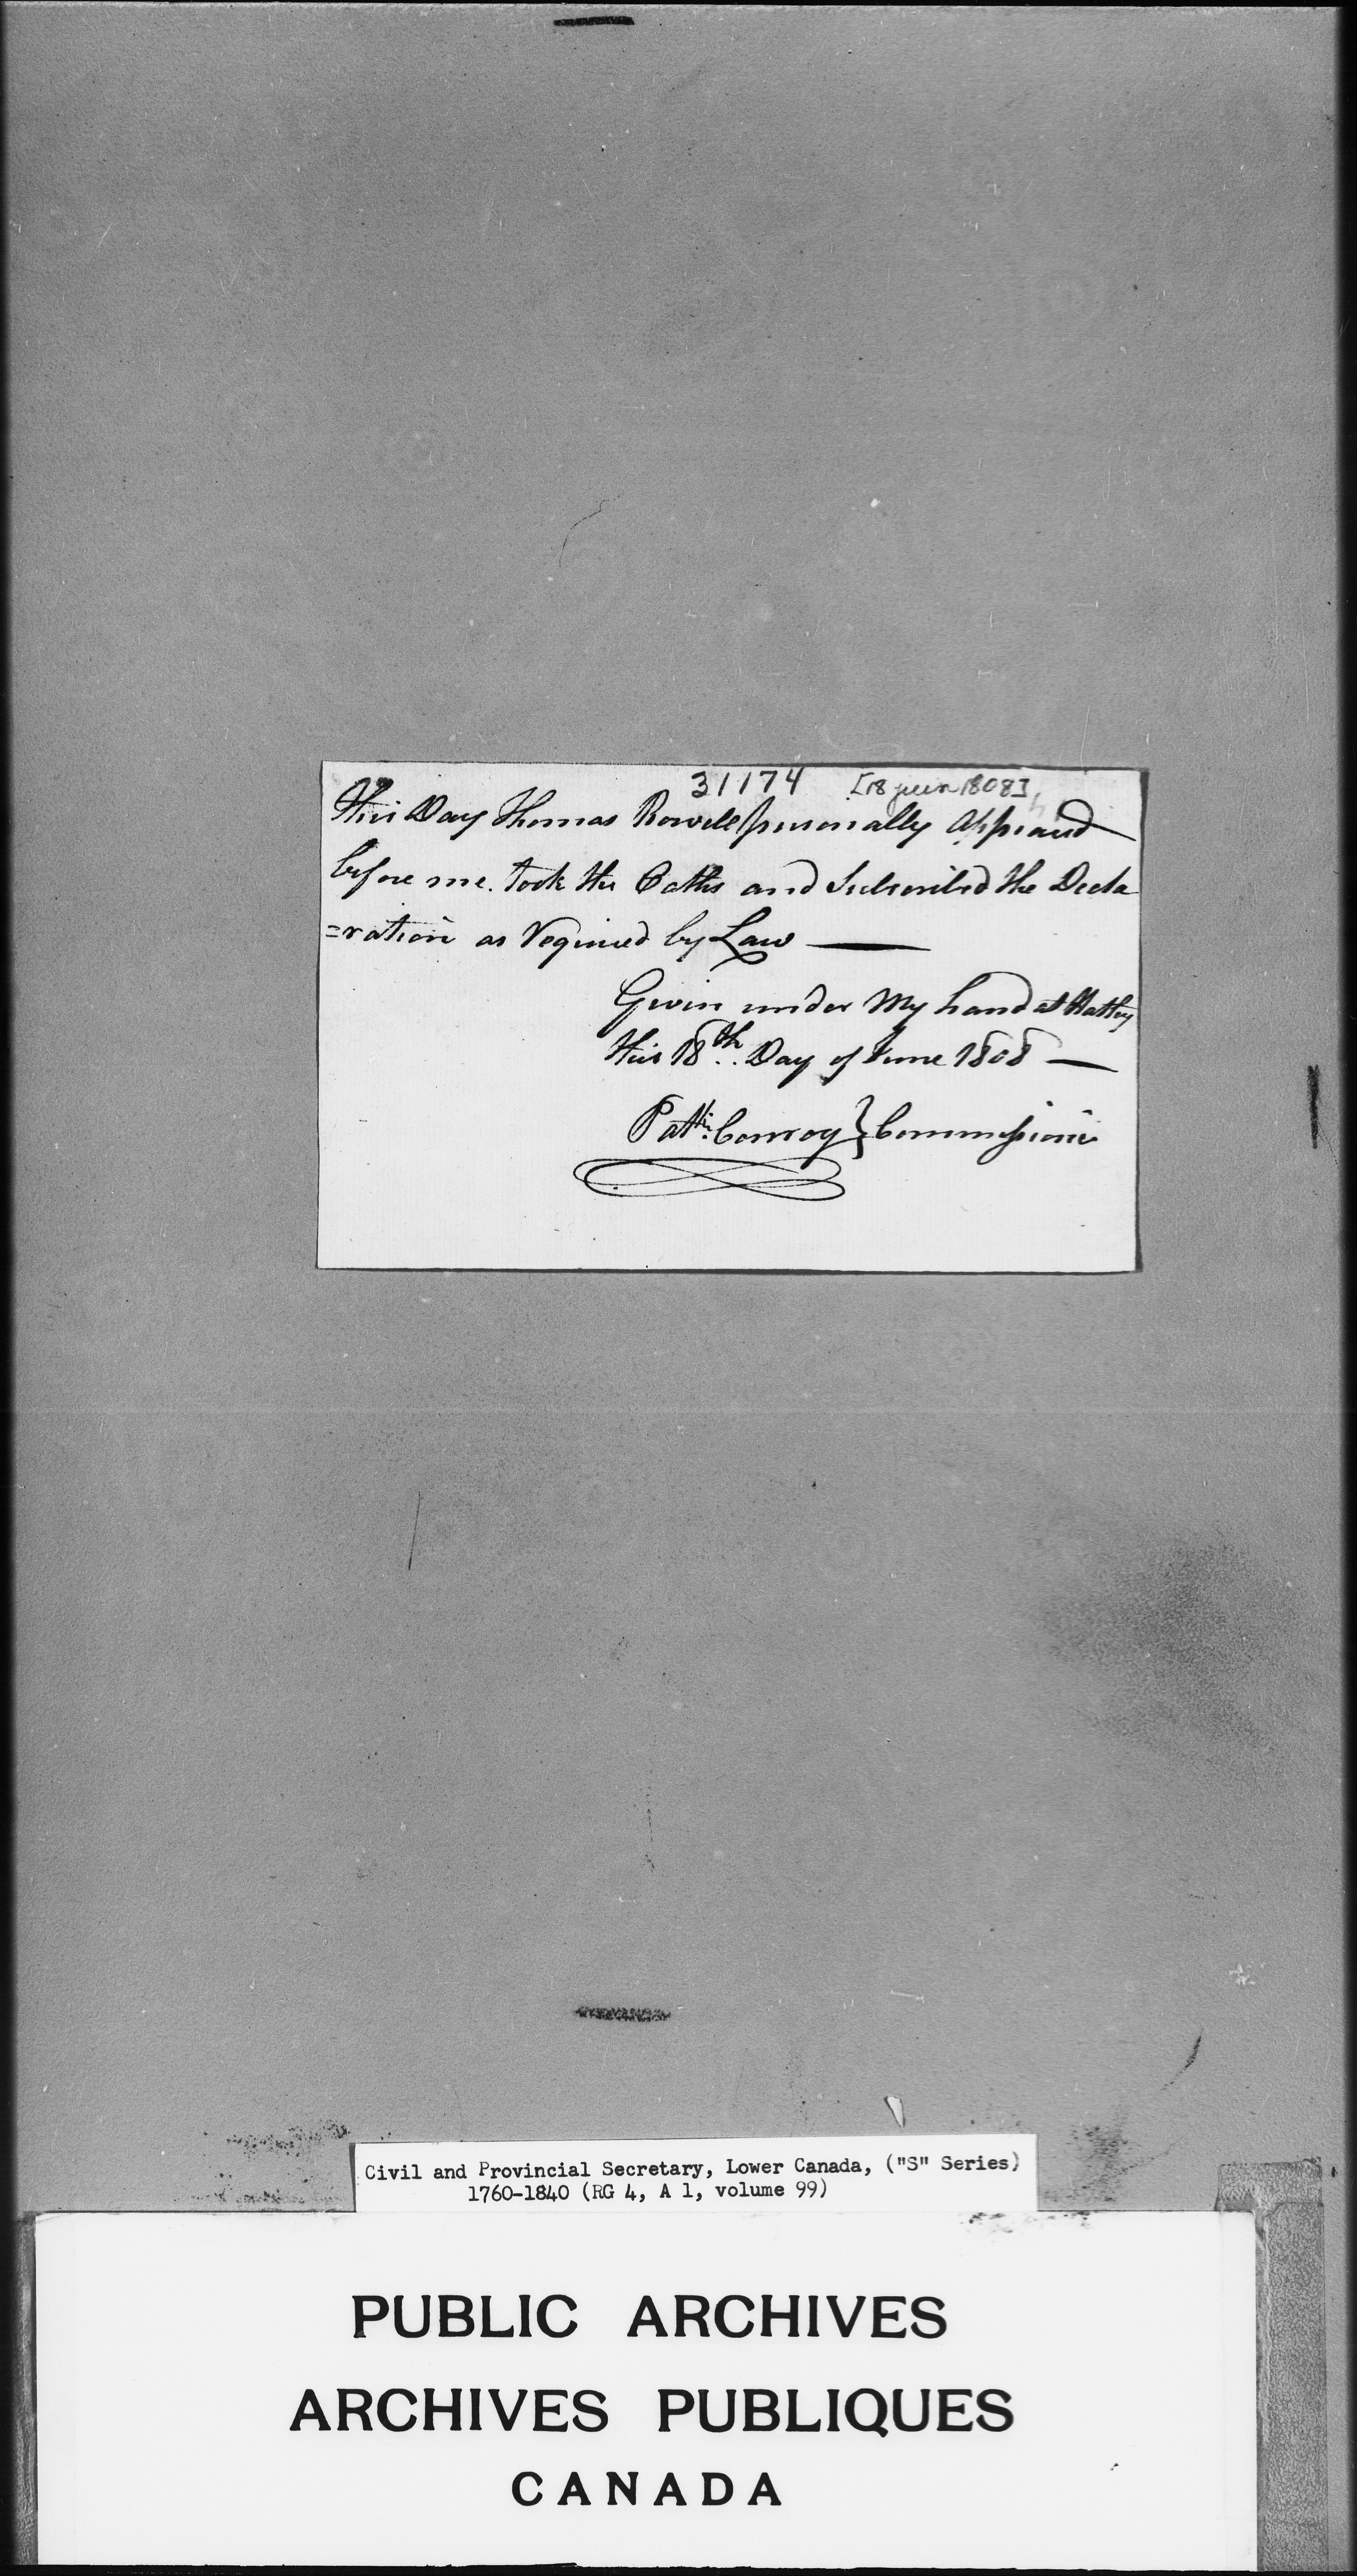 31174 [18 juin 1808]
This Day Thomas Rowell personally Appeard
before me. took the Oaths and Subscribed the Decla
=ration as Required by Law —
Given under My hand at Hatley
this 18th.. Day of June 1808 —
Patk: Conroy } Commissioner
Civil and Provincial Secretary, Lower Canada, ("S" Series)
1760-1840 (RG 4, A 1, volume 99)
PUBLIC ARCHIVES
ARCHIVES PUBLIQUES
CANADA